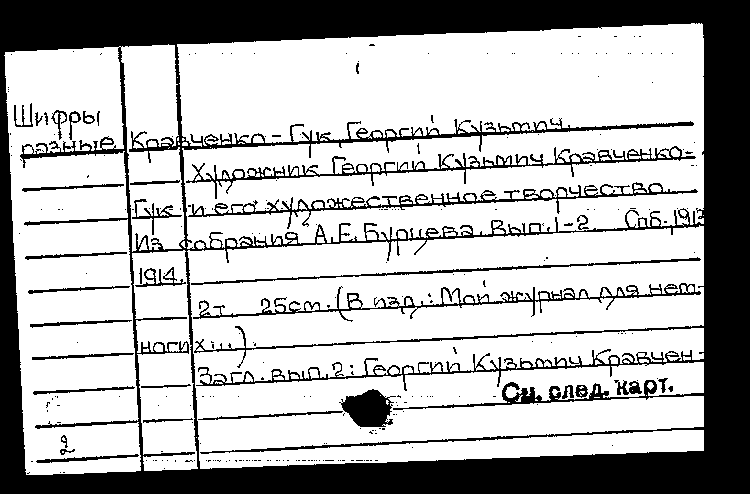 Шифры
разные Кравченко-Гук, Георгий Кузьмич.
Художник Георгий Кузьмич Кравченко-
Гук и его художественное творчество.
Из собрания А.Е.Бурцева. Вып.1-2. Спб., 1913-
1914.
2т. 25см. (В изд.: Мой журнал для нем-
ногих...).
Загл. вып.2: Георгий Кузьмич Кравчен-
См. след. карт.
2